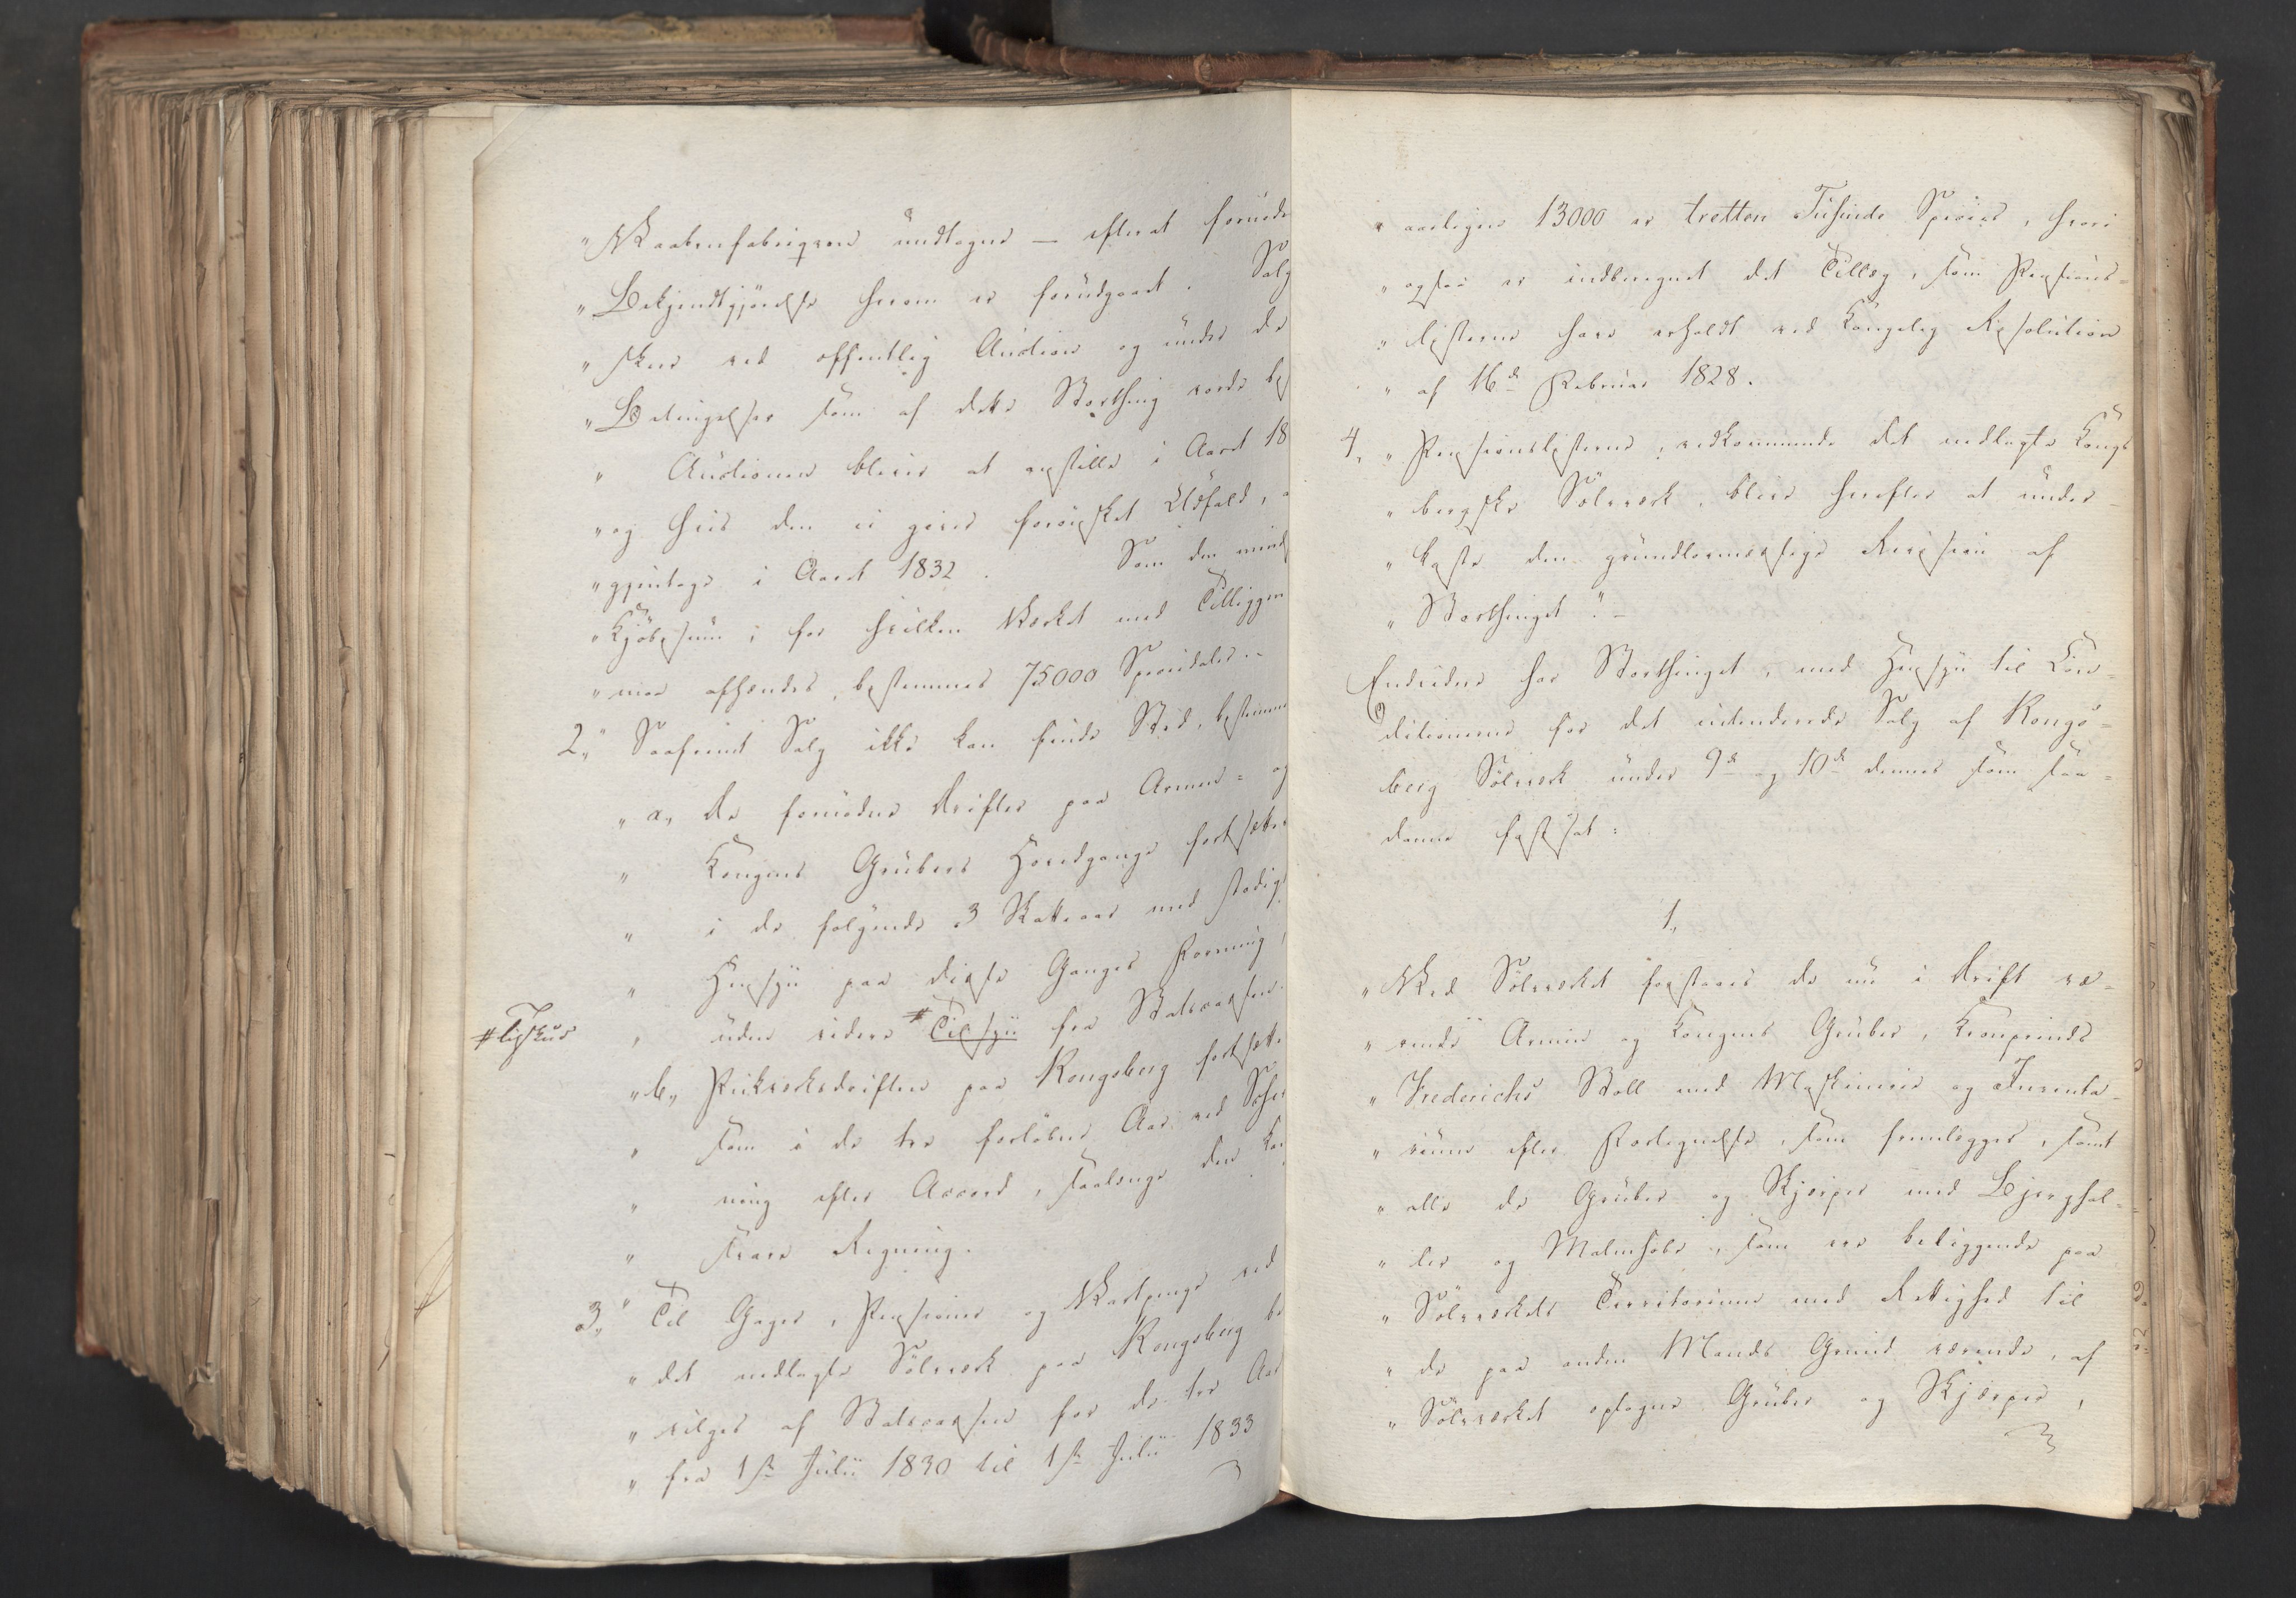 „Vaabenfabriqven undtagne — efterat forned
„Bekjendtgjörelse herom er forudgaaet. Salg
„skeer ved offentlig Auction og under de
„Betingelser som af dette Storthing vorde be
„ Auctionen bliver at anstille i Aaret 18
„og hvis den ei giver forönsket Udfald,
„gjentages i Aaret 1832. Som den mind
„Kjöbesum, for hvilken Værket med Tilliggen
„maa afhændes, bestemmes 75000 Speciedaler.-
2, „Saafremt Salg ikke kan finde Sted, bestemme
„ a, de fornødne Drifter paa Armen- og
„ Kongens Grubers Hovedgange fortsættes
„ i de følgende 3 Skatteaar med stadigt
„ Hensyn paa disse Ganges Forening,
„ uden videre # Tilsyn fra Statscassen.
# Tilskud
„ b, Pukværksdriften paa Kongsberg fortsætte
„ som i de tre forløbne Aar ved Schei
„ ning efter Accord, saalænge den kan
„ svare Regning.
3, „Til Gager, Pensioner og Vartpenge ved
„ det nedlagte Sølvværk paa Kongsberg be
„ vilges af Statscassen for de tre Aar
„ fra 1ste Julii 1830 til 1ste Julii 1833
„ aarligen 13000 er tretten Tusinde Specier, hvori
„ ogsaa er indberegnet det Tillæg, som Pensions-
„ listerne have erholdt ved Kongelig Resolution
„ af 16de Februar 1828.
4, „ Pensionslisterne, vedkommende det nedlagte Kongs
„ bergske Sölvværk, blive herefter at under-
„ kaste den grundlovmæssige Revision af
„ Storthinget". -
Endvidere har Storthinget, med Hensyn til Con-
ditionerne for det intenderede Salg af Kongs-
berg Sölvværk under 9de og 10de dennes som saa-
danne fastsat:
1,
„ Ved Sölvværket forstaaes de nu i Drift væ-
„ rende Armen og Kongens Gruber, Kronprinds
„ Frederichs Stoll med Maskinerie og Inventa-
„ rium efter Fortegnelse, som fremlægges, samt
„ alle de Gruber og Skjerper med Bjerghal-
„ der og Malmhobe, som ere beliggende paa
„ Sölvværkets Territorium med Rettighed til
„ de paa anden Mands Grund værende, af
„ Sölvværket optagne Gruber og Skjerper,